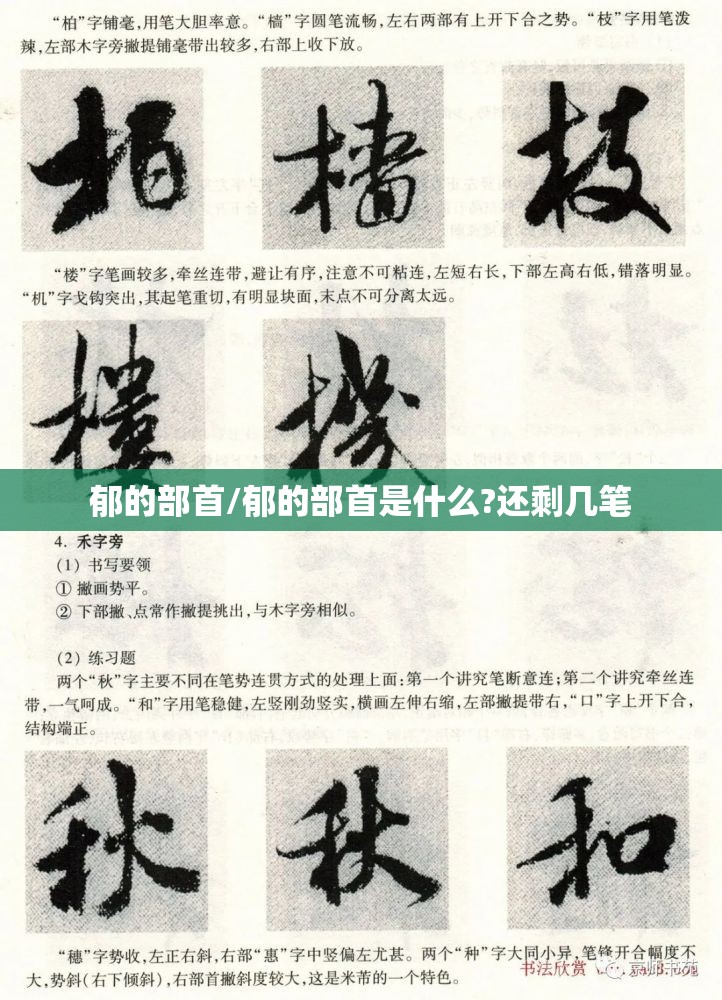 “柏”字铺毫,用笔大胆率意。“樯”字圆笔流畅,左右两部有上开下合之势。“枝”字用笔泼
辣,左部木字旁撇提铺毫带出较多,右部上收下放。
柏 檣 枝
“楼”字笔画较多,牵丝连带,避让有序,注意不可粘连,左短右长,下部左高右低,错落明显。
“机”字戈钩突出,其起笔重切,有明显块面,末点不可分离太远。
樓 機
郁的部首/郁的部首是什么?还剩几笔
4. 禾字旁
(1) 书写要领
① 撇画势平。
② 下部撇、点常作撇提挑出,与木字旁相似。
(2) 练习题
两个“秋”字主要不同在笔势连贯方式的处理上面:第一个讲究笔断意连;第二个讲究牵丝连
带,一气呵成。“和”字用笔稳健,左竖刚劲竖实,横画左伸右缩,左部撇提带右,“口”字上开下合,
结构端正。
秋 秋 和
“穗”字势收,左正右斜,右部“惠”字中竖偏左尤甚。两个“种”字大同小异,笔锋开合幅度不
大,势斜(右下倾斜),右部首撇斜度较大,这是米芾的一个特色。
书法欣赏